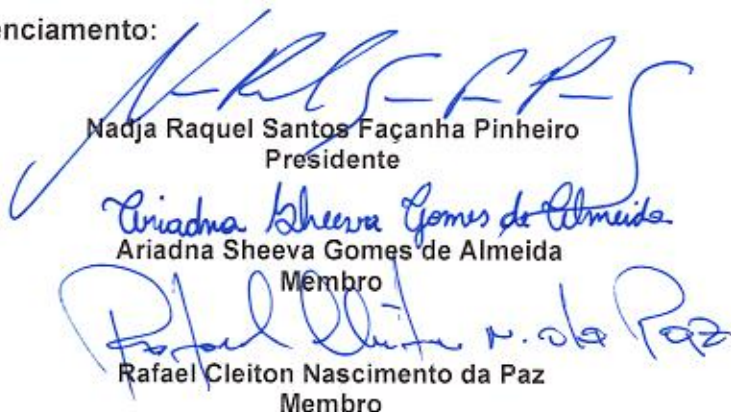 enciamento:
Nadja Raquel Santos Façanha Pinheiro
Presidente
Ariadna Sheeva Gomes de Almeida
Ariadna Sheeva Gomes de Almeida
Membro
Rafael Cleiton N. da Paz
Rafael Cleiton Nascimento da Paz
Membro